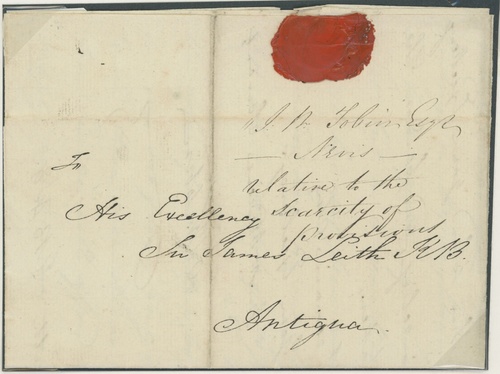 J. W. Tobin Esqr
— Nevis —
relative to the
scarcity of
provisions
To
His Excellency
Sir James Leith KB.
Antigua.